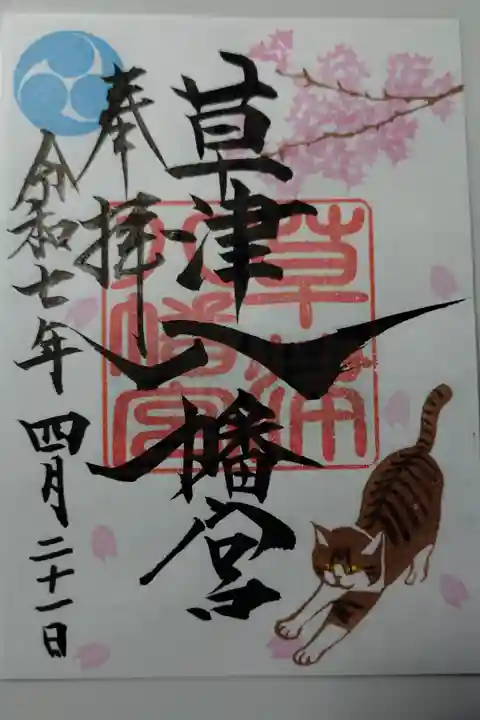 草津八幡宮
奉拝
令和七年 四月二十一日
草津
八幡宮